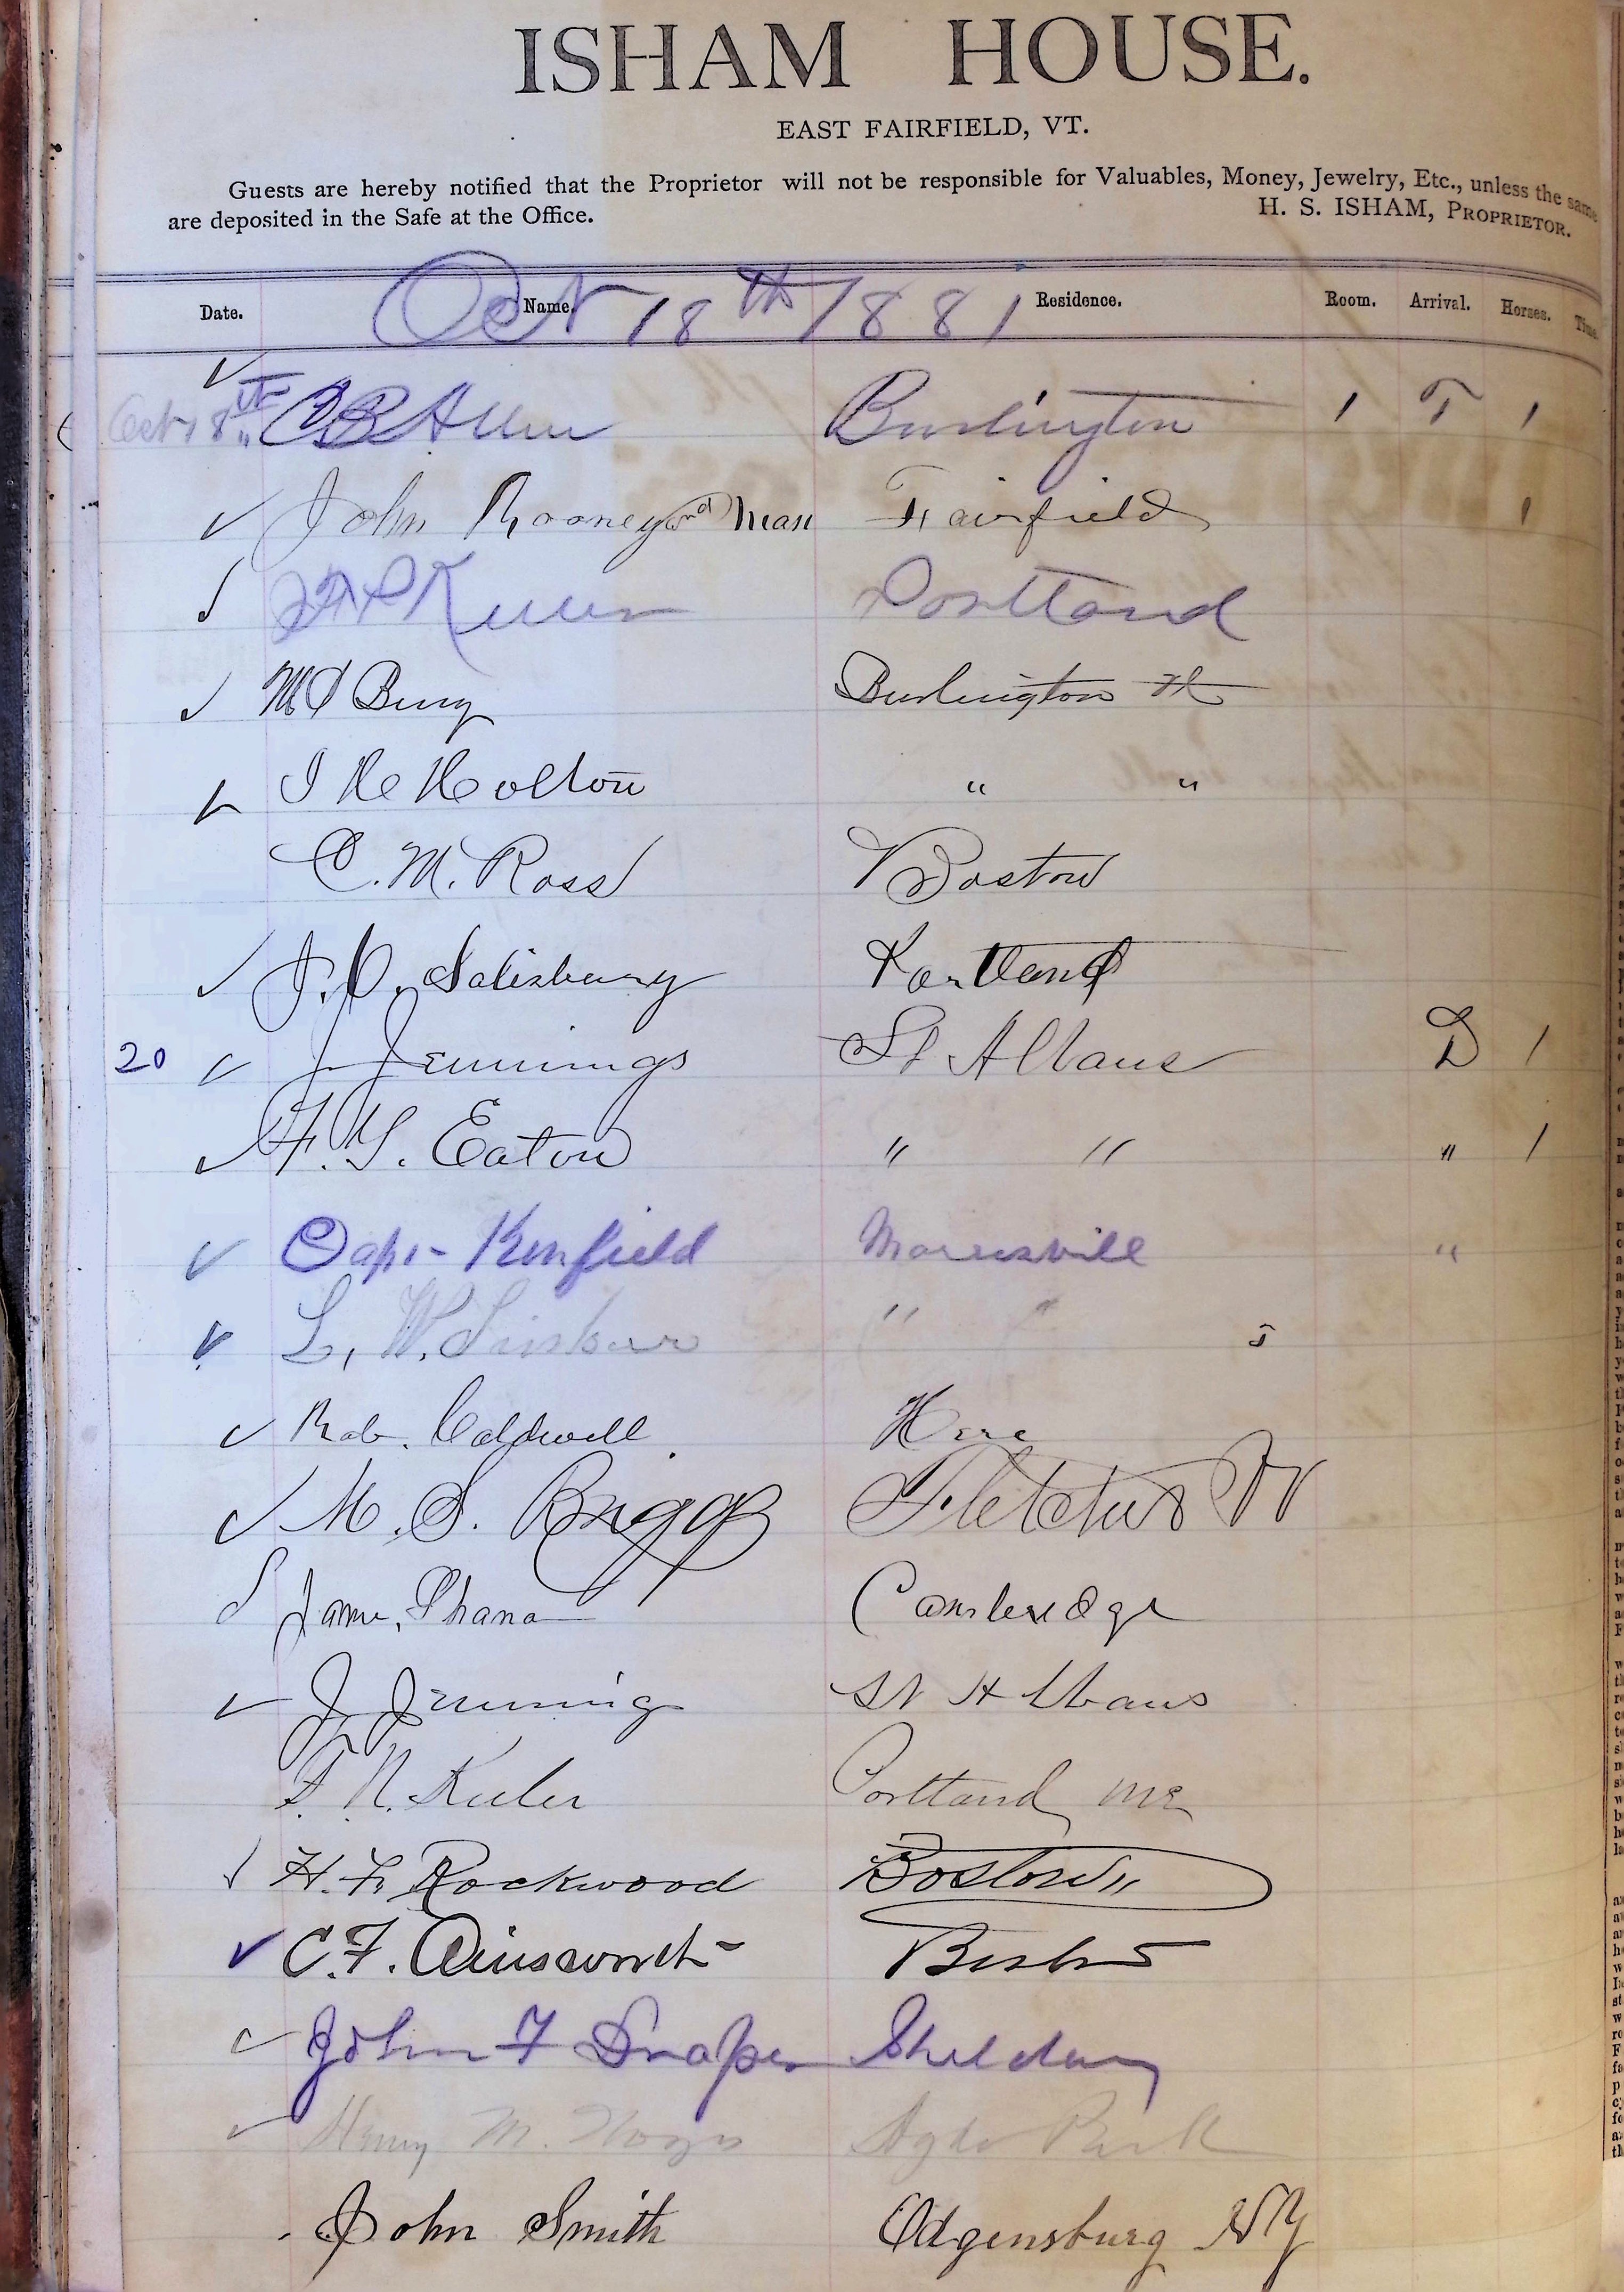 ISHAM HOUSE.
EAST FAIRFIELD, VT.
Guests are hereby notified that the Proprietor will not be responsible for Valuables, Money, Jewelry, Etc., unless the same
are deposited in the Safe at the Office.
H. S. ISHAM, PROPRIETOR.
Oct 18th 1881
Date. Name. Residence. Room. Arrival. Horses. Time
Oct 18th C B Allen Burlington 1 T 1
John Rooney and man Fairfield 1
Portland
Burlington Vt
Holton " "
C. M. Ross Boston
Salisbury Portland
20 J Jennings St Albans D 1
Eaton " " " 1
Capt- Kenfield Morrisvill "
L. W. " "
Rob. Caldwell Here
M. S. Briggs Fletcher Vt
Cambridge
J Jennings St Albans
F. N. Keeler Portland Me
H. F. Rockwood Boston "
C. F. Ainsworth
John F Draper Sheldon
Henry M.
John Smith Odgensburg N Y